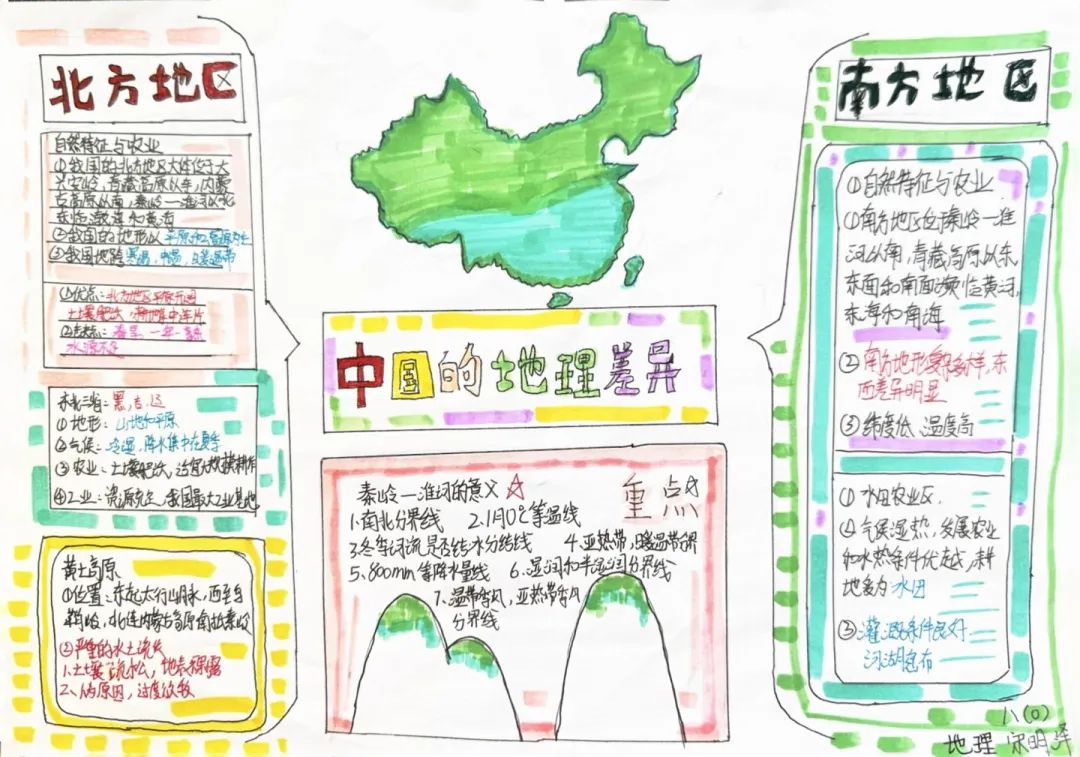 北方地区
自然特征与农业
①我国的北方地区大体位于大
兴安岭,青藏高原以东,内蒙
古高原以南,秦岭一淮河以北
东临渤海和黄海
②我国的地形以平原和高原为主
③我国地跨寒温,中温,暖温带
①优点:北方地区平原广阔
土壤肥沃,耕地集中连片
水源不足
东北三省:黑,吉,辽
①地形:山地和平原
②气候:冷湿,降水集中在夏季
③农业:土壤肥沃,适宜大规模耕作
④工业:资源充足,我国最大工业基地
黄土高原
①位置:东起太行山脉,西至乌
鞘岭,北连内蒙古高原南抵秦岭
②严重的水土流失
1.土壤疏松,地表裸露
2.人为原因,过度放牧
中国的地理差异
秦岭一淮河的意义 重点
1.南北分界线 2.1月0℃等温线
3.冬季河流是否结冰分界线 4.亚热带,暖温带分界
5.800mm等降水量线 6.湿润和半湿润分界线
7.温带季风,亚热带季风
分界线
南方地区
①自然特征与农业
①南方地区位于秦岭一淮
河以南,青藏高原以东,
东面和南面濒临黄河,
东海和南海
②南方地形复杂多样,东
西差异明显
③纬度低、温度高
①水田农业区.
②气候湿热,发展农业
和水热条件优越,耕
地多为水田
③灌溉条件良好
河湖
地理